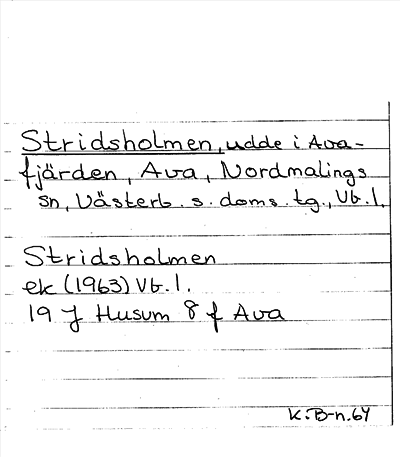 Stridsholmen, udde i Ava-
fjärden, Ava, Nordmalings
sn, Västerb. s. doms. tg., Vb. l.
Stridsholmen
ek (1963) Vb. l.
19 J Husum 8 f Ava
K. B-n. 64